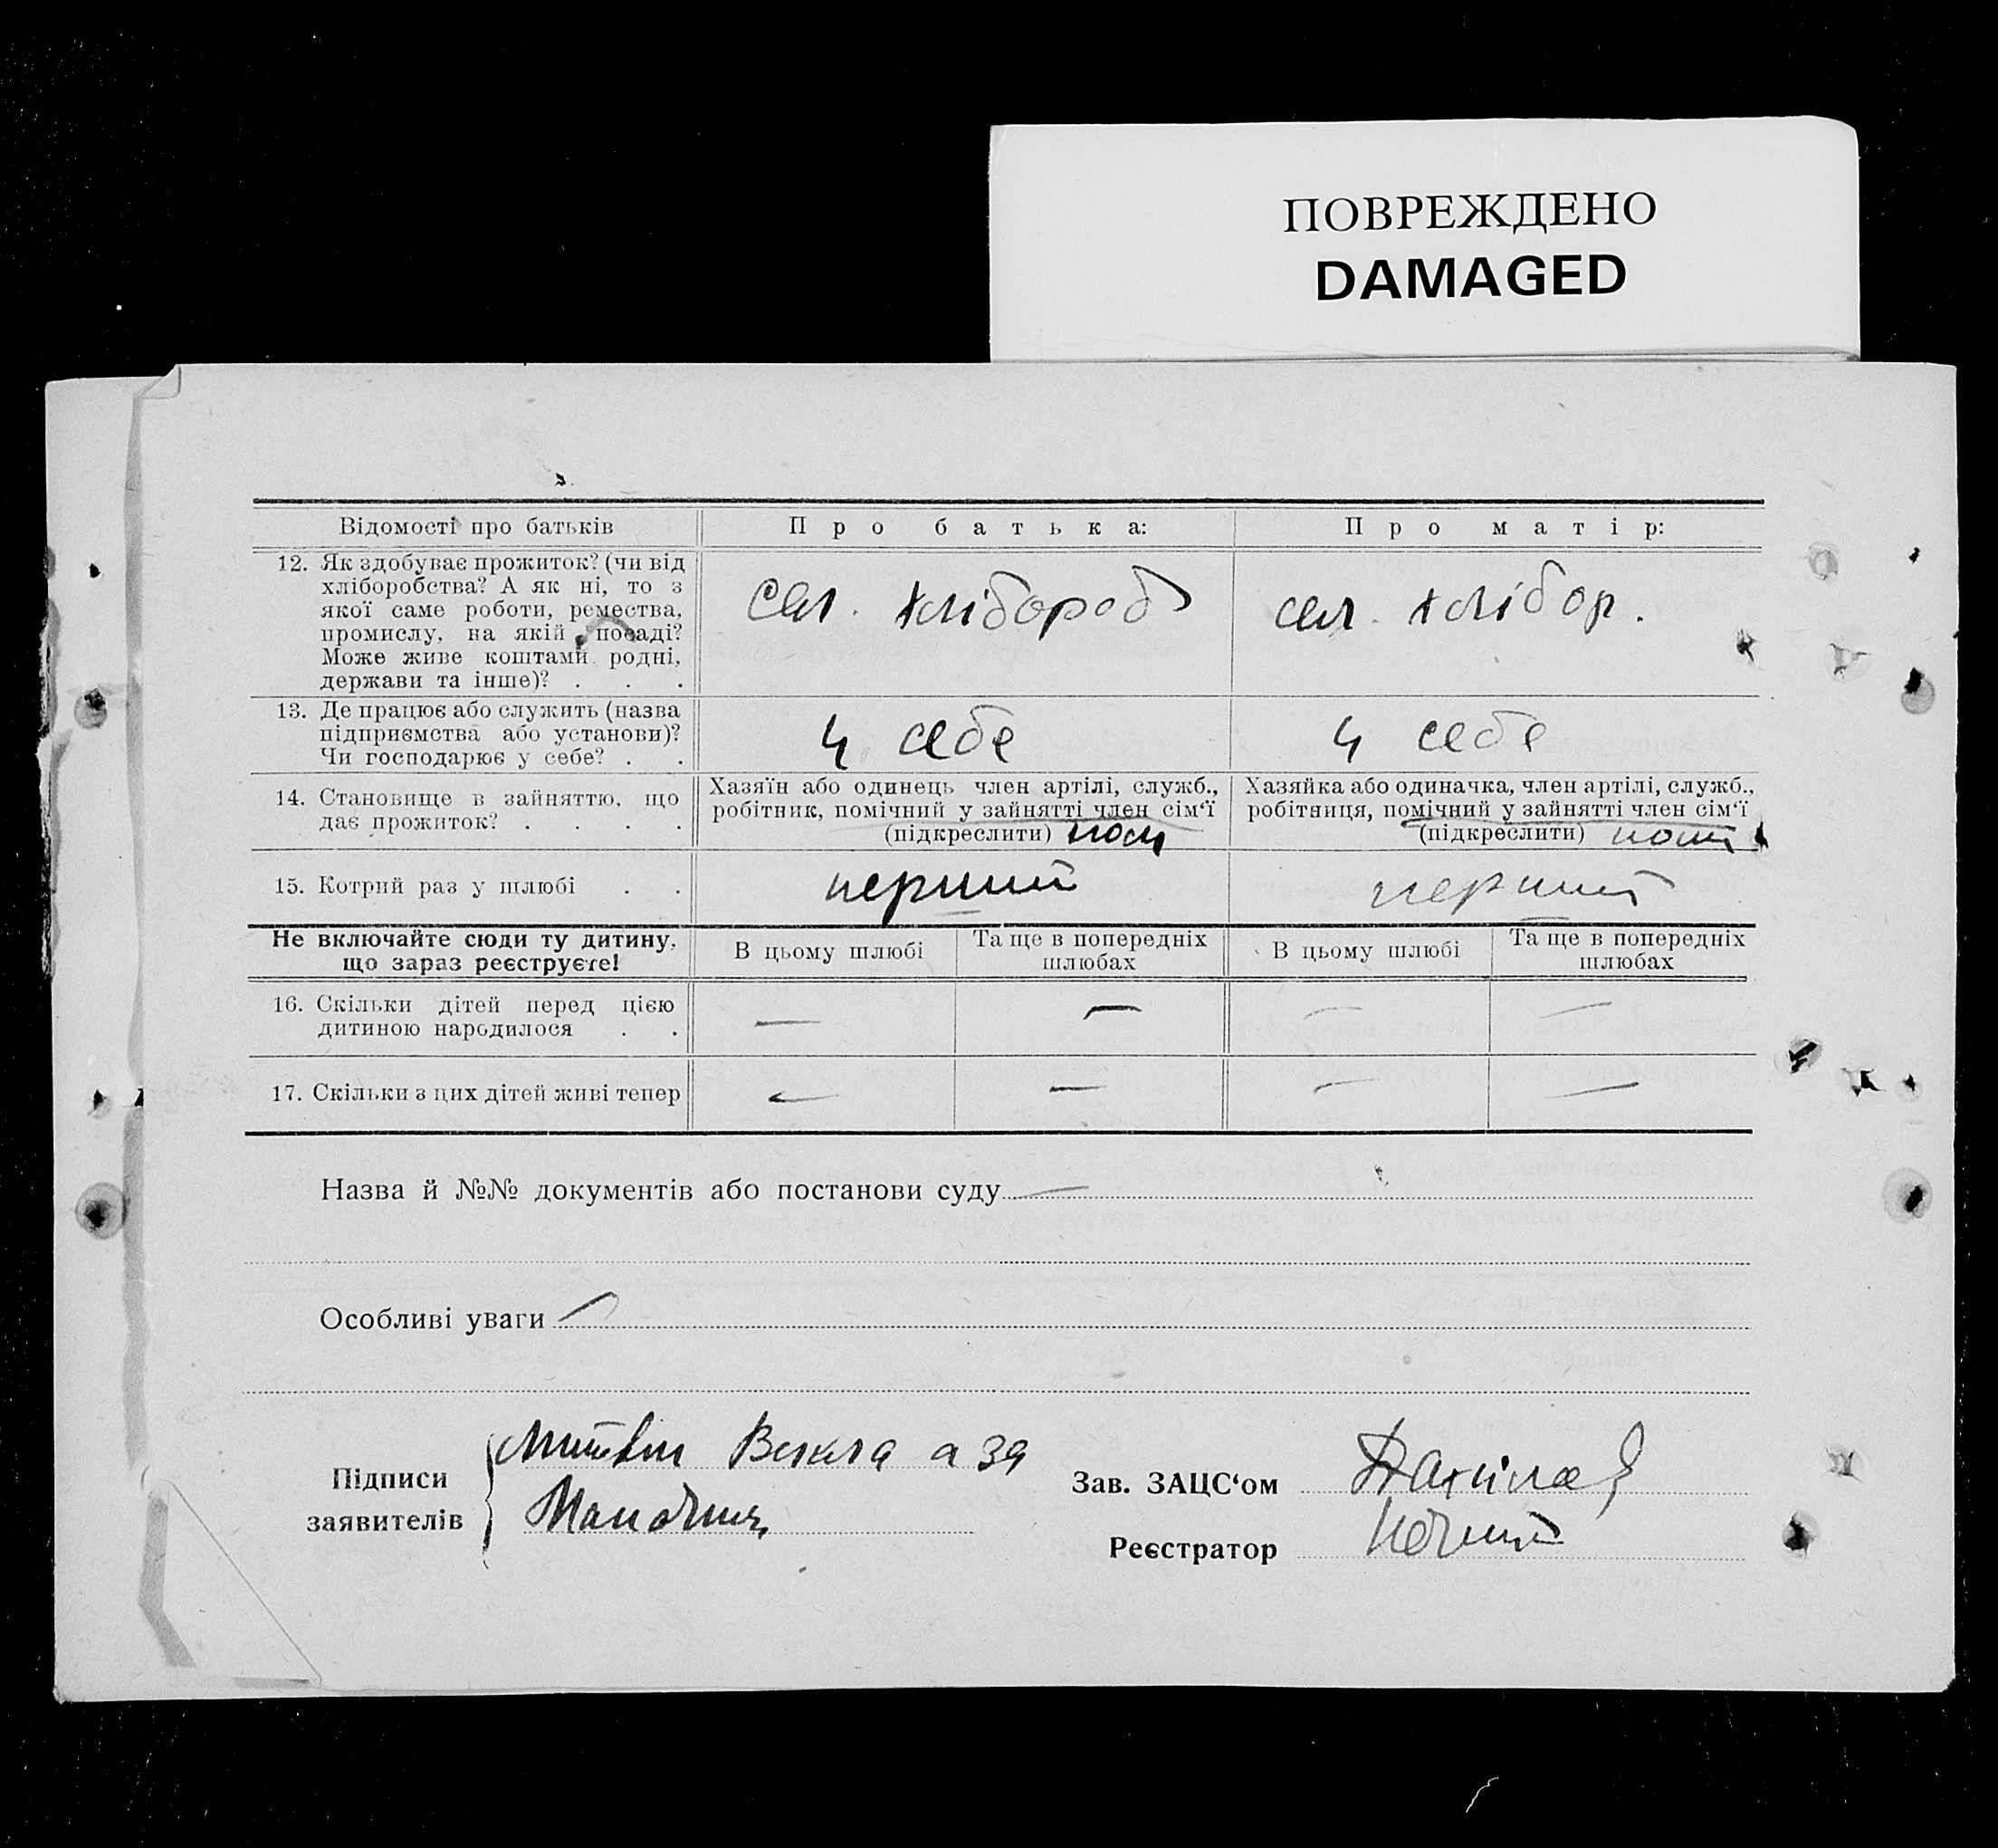 ПОВРЕЖДЕНО
DAMAGED
Відомості про батьків
Про батька:
Про матір:
12. Як здобуває прожиток? (чи від
хліборобства? А як ні, то з
якої саме роботи, ремества,
промислу, на якій посаді?
Може живе коштами родні,
держави та інше)? . . .
Сел. хлібороб
сел. хлібор.
13. Де працює або служить (назва
підприємства або установи)?
Чи господарює у себе? . .
у себе
у себе
14. Становище в зайняттю, що
дає прожиток? . . . .
Хазяїн або одинець член артілі, служб.,
робітник, помічний у зайнятті член сім‘ї
(підкреслити)
Хазяйка або одиначка, член артілі, служб.,
робітниця, помічний у зайнятті член сім‘ї
(підкреслити)
15. Котрий раз у шлюбі . .
перший
перший
Не включайте сюди ту дитину,
що зараз реєструєте!
В цьому шлюбі
Та ще в попередніх
шлюбах
В цьому шлюбі
Та ще в попередніх
шлюбах
16. Скільки дітей перед цією
дитиною народилося . .
— — — —
17. Скільки з цих дітей живі тепер
— — — —
Назва й №№ документів або постанови суду —
Особливі уваги —
Підписи
заявителів
Векла а за
Зав. ЗАЦС‘ом
Реєстратор